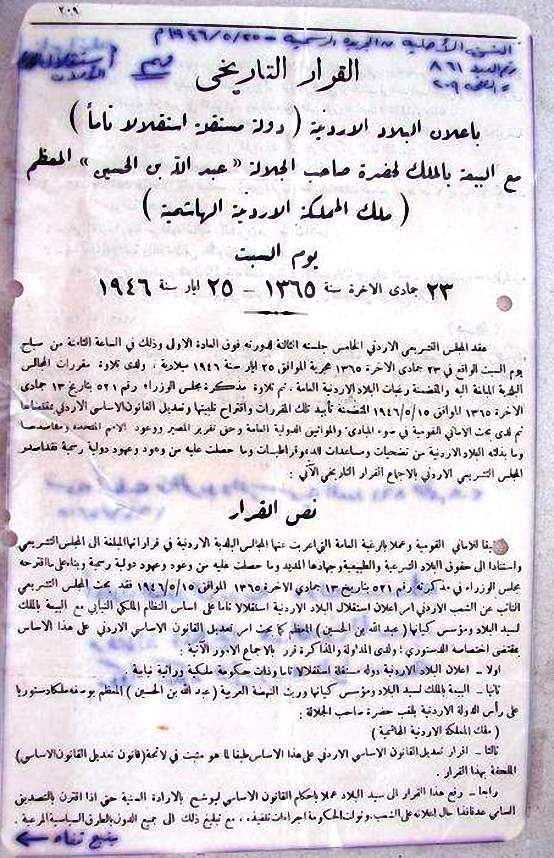 ٢٠٩
النسخة الأصلية من الجريدة الرسمية - ١٩٤٦/٥/٢٥م
رقم العدد ٨٦١
ص ٢٠٩
استقلال
الأردن
القرار التاريخي
باعلان البلاد الاردنية ( دولة مستقلة استقلالا تاماً )
مع البيعة بالملك لحضرة صاحب الجلالة « عبد الله بن الحسين » المعظم
( ملك المملكة الاردنية الهاشمية )
يوم السبت
٢٣ جمادى الاخرة سنة ١٣٦٥ - ٢٥ ايار سنة ١٩٤٦
عقد المجلس التشريعي الاردني الخامس جلسته الثالثة لدورته فوق العادة الاولى وذلك في الساعة الثامنة من صباح
يوم السبت الواقع في ٢٣ جمادى الاخرة ١٣٦٥ هجرية الموافق ٢٥ ايار سنة ١٩٤٦ ميلادية . ولدى تلاوة مقررات المجالس
البلدية المبلغة اليه والمتضمنة رغبات البلاد الاردنية العامة . ثم تلاوة مذكرة مجلس الوزراء رقم ٥٢١ بتاريخ ١٣ جمادى
الاخرة ١٣٦٥ الموافق ١٩٤٦/٥/١٥ المتضمنة تأييد تلك المقررات واقتراح تلبيتها وتعديل القانون الاساسي الاردني بمقتضاها
ثم لدى بحث الاماني القومية في ضوء المبادىء والمواثيق الدولية العامة وحق تقرير المصير ووعود الامم المتحدة ومقاصدها
وما بذلته البلاد الاردنية من تضحيات ومساعدات للديموقراطيات وما حصلت عليه من وعود وعهود دولية رسمية فقد اصدر
المجلس التشريعي الاردني بالاجماع القرار التاريخي الآتي :
نص القرار
للاماني القومية وعملا بالرغبة العامة التي اعربت عنها المجالس البلدية الاردنية في قراراتها المبلغة الى المجلس التشريعي
واستنادا الى حقوق البلاد الشرعية والطبيعية وجهادها المديد وما حصلت عليه من وعود وعهود دولية رسمية وبناء على ما اقترحه
مجلس الوزراء في مذكرته رقم ٥٢١ بتاريخ ١٣ جمادى الاخرة ١٣٦٥ الموافق ١٩٤٦/٥/١٥ فقد بحث المجلس التشريعي
النائب عن الشعب الاردني امر اعلان استقلال البلاد الاردنية استقلالا تاما على اساس النظام الملكي النيابي مع البيعة بالملك
لسيد البلاد ومؤسس كيانها ( عبد الله بن الحسين ) المعظم كما بحث امر تعديل القانون الاساسي الاردني على هذا الاساس
بمقتضى اختصاصه الدستوري ؛ ولدى المداولة والمذاكرة قرر بالاجماع الامور الآتية :
اولا - اعلان البلاد الاردنية دولة مستقلة استقلالا تاما وذات حكومة ملكية وراثية نيابية .
ثانيا - البيعة بالملك لسيد البلاد ومؤسس كيانها وريث النهضة العربية ( عبد الله بن الحسين ) المعظم بوصفه ملكا دستوريا
على رأس الدولة الاردنية بلقب حضرة صاحب الجلالة :
( ملك المملكة الاردنية الهاشمية )
ثالثا - اقرار تعديل القانون الاساسي الاردني على هذا الاساس طبقا لما هو مثبت في لائحة ( قانون تعديل القانون الاساسي )
الملحقة بهذا القرار .
رابعا - رفع هذا القرار الى سيد البلاد عملا باحكام القانون الاساسي ليوشح بالارادة السنية حتى اذا اقترن بالتصديق
السامي عد نافذا حال اعلانه على الشعب وتولت الحكومة اجراءات تنفيذه ، مع تبليغ ذلك الى جميع الدول بالطرق السياسية المرعية .
يتبع